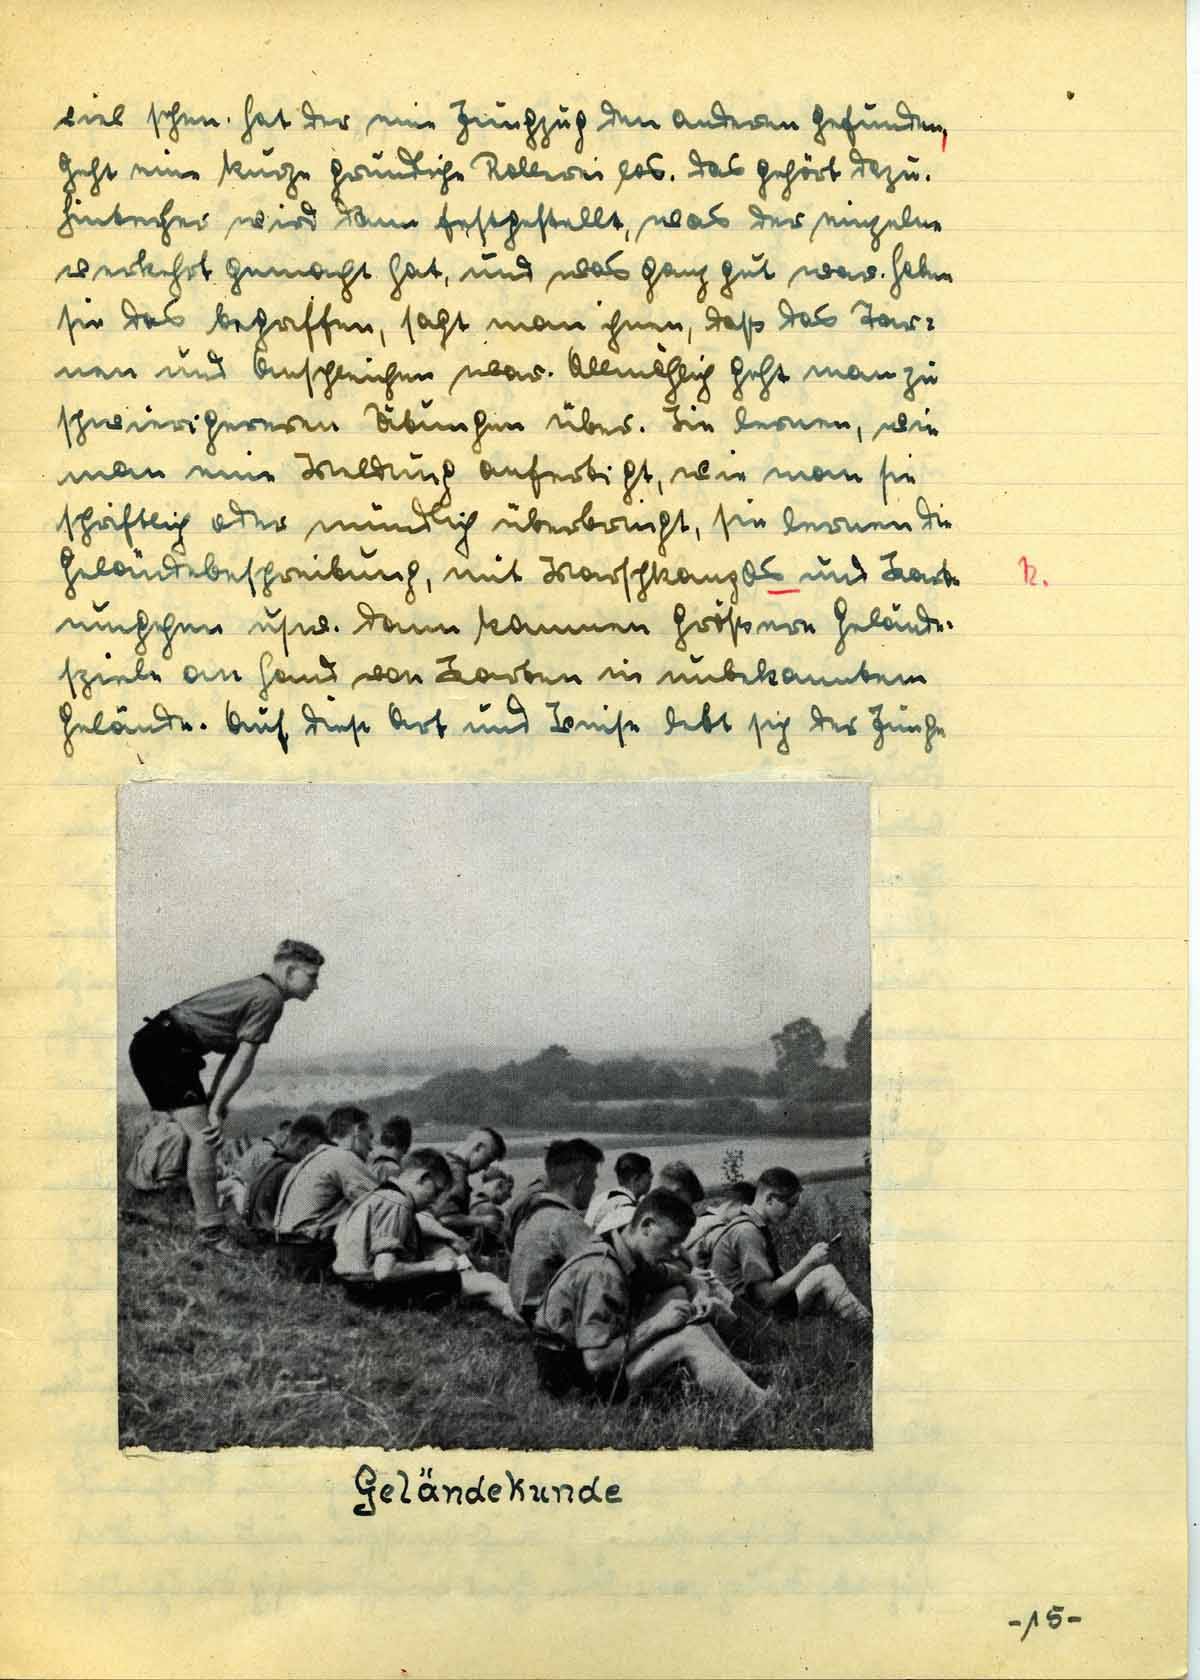 viel sehen. Hat der eine Jungzug den anderen gefunden,
geht eine kurze gründliche Rollerei los. Das gehört dazu.
Hinterher wird dann festgestellt, was der einzelne
verkehrt gemacht hat, und was ganz gut war. Haben
sie das begriffen, sagt man ihnen, daß das Tar=
nen und Anschleichen war. Allmählich geht man zu
schwierigereren Übungen über. Sie lernen, wie
man eine Meldung anfertigt, wie man sie
schriftlich oder mündlich überbringt, sie lernen die
Geländebeschreibung, mit Marschkompas und Karte
umgehen usw. Dann kommen größere Gelände-
spiele an Hand von Karten in unbekanntem
Gelände. Auf diese Art und Weise lebt sich der Junge
R.
Geländekunde
-15-